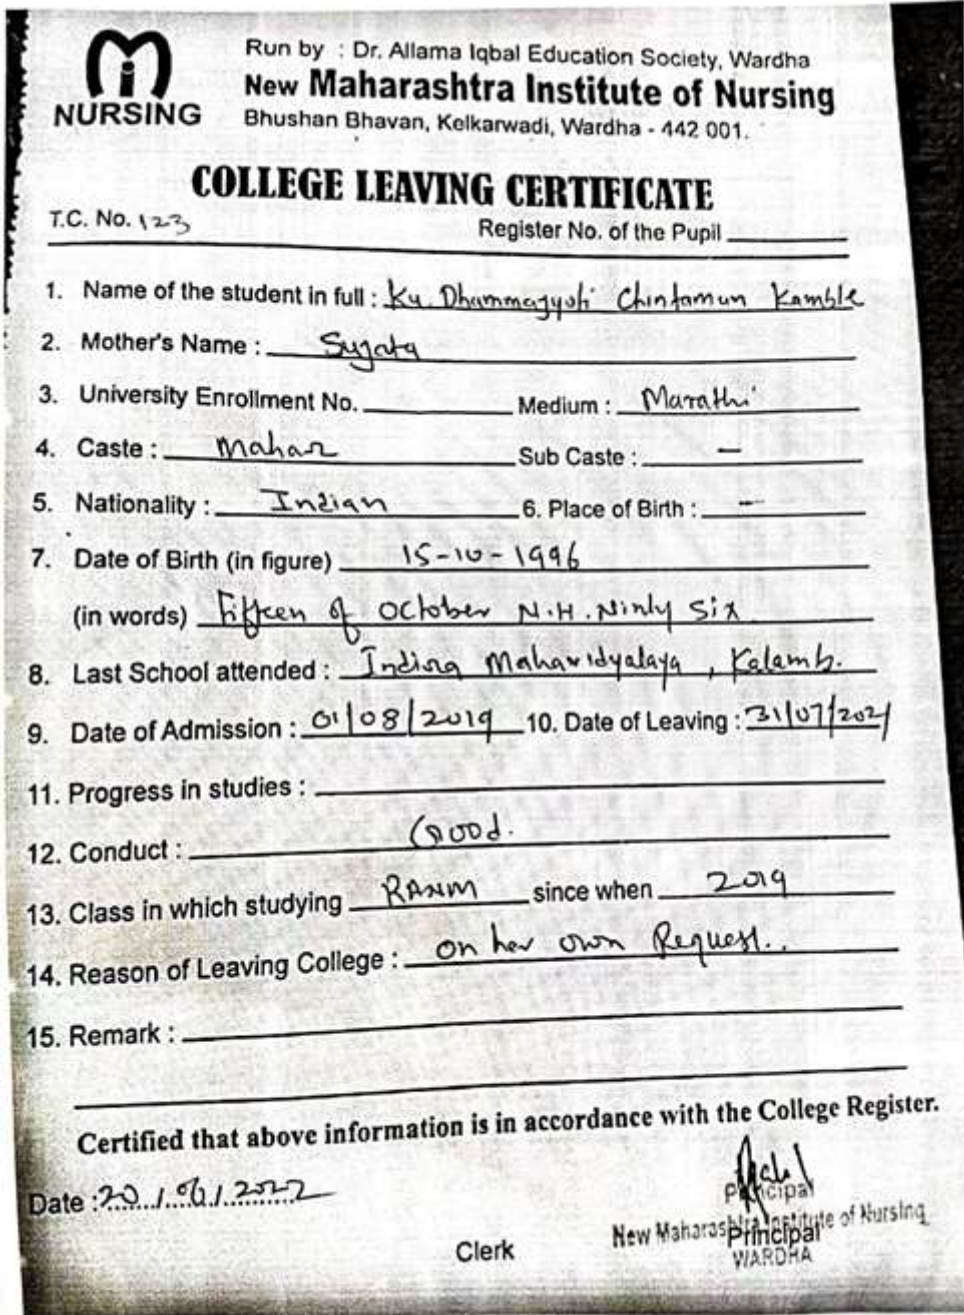 NURSING
Run by : Dr. Allama Iqbal Education Society, Wardha
New Maharashtra Institute of Nursing
Bhushan Bhavan, Kelkarwadi, Wardha - 442 001.
COLLEGE LEAVING CERTIFICATE
T.C. No. 123 Register No. of the Pupil
1. Name of the student in full : Ku. Dhammajyoti Chintamun Kamble
2. Mother's Name : Sujata
3. University Enrollment No. Medium : Marathi
4. Caste : Mahar Sub Caste : -
5. Nationality : Indian 6. Place of Birth : -
7. Date of Birth (in figure) 15-10-1996
(in words) Fifteen of October N.H. Ninty Six
8. Last School attended : Indira Mahavidyalaya, Kalamb.
9. Date of Admission : 01/08/2019 10. Date of Leaving : 31/07/2021
11. Progress in studies :
12. Conduct : Good.
13. Class in which studying RANM since when 2019
14. Reason of Leaving College : on her own Request..
15. Remark :
Certified that above information is in accordance with the College Register.
Date : 20/ /2022
Principal
New Maharashtra Institute of Nursing
Clerk Principal
WARDHA